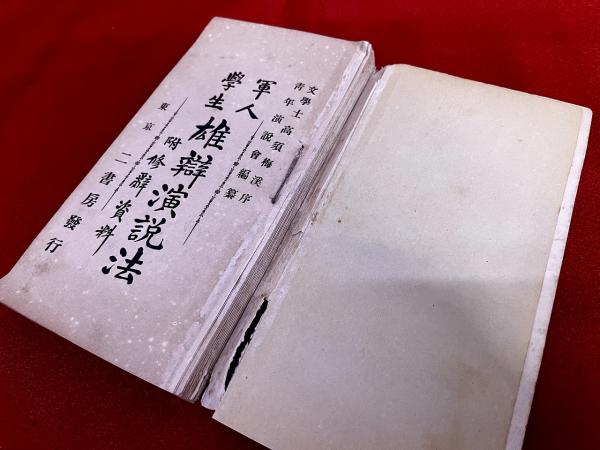 文學士高須梅溪序
青年演說會編纂
軍人
學生
雄辯演說法
附修辭資料
東京 二書房發行